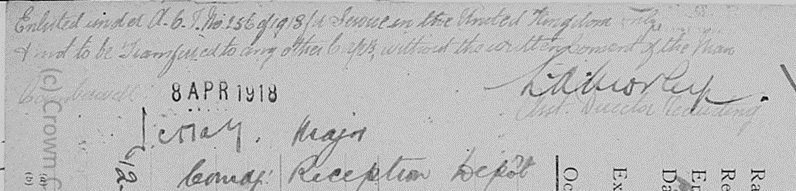 Enlisted under A.C.I. No. 256 of 1918 for Service in the United Kingdom only,
& not to be transferred to any other Corps, without the written consent of the Man
8 APR 1918
Asst. Director Recruiting
Major
Comdg. Reception Depôt
(c) Crown C